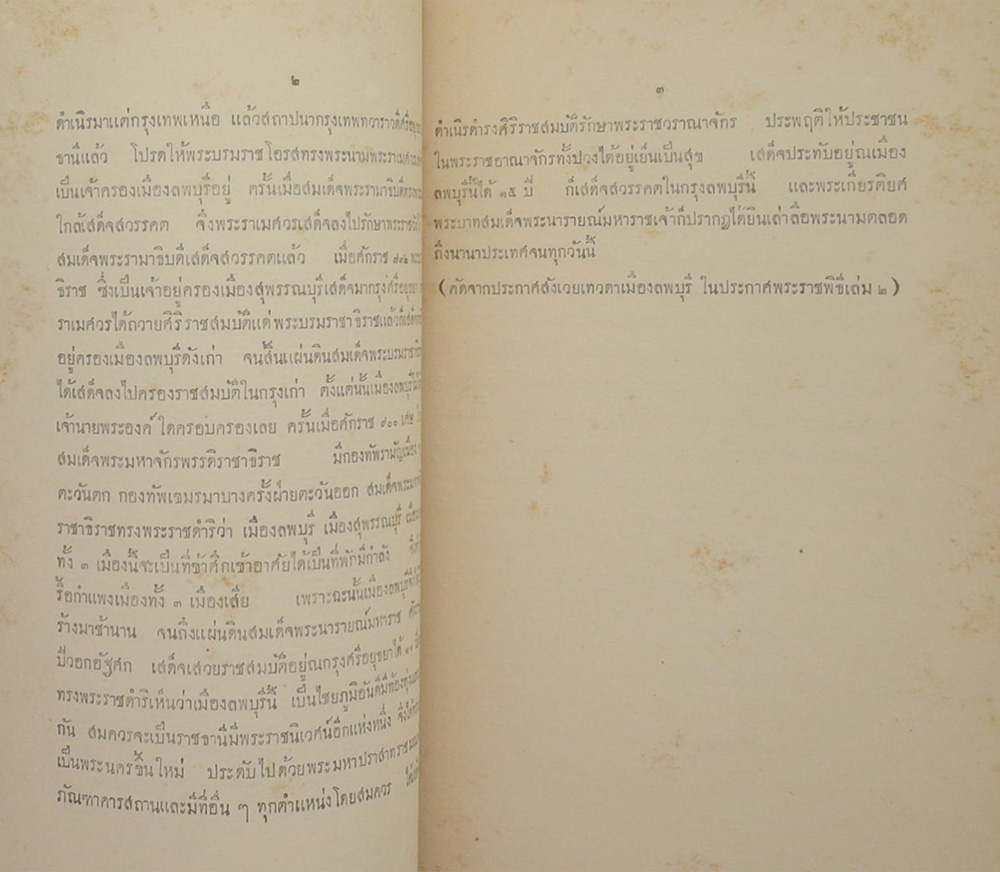 ๒
ดำเนิรมาแต่กรุงเทพเหนือ แล้วสถาปนากรุงเทพทวาราวดีศรีอยุธยา
ธานีแล้ว โปรดให้พระบรมราชโอรสทรงพระนามพระราเมศวร
เป็นเจ้าครองเมืองลพบุรีอยู่ ครั้นเมื่อสมเด็จพระรามาธิบดี
ใกล้เสด็จสวรรคต จึงพระราเมศวรเสด็จลงไปรักษาพระราช
สมเด็จพระรามาธิบดีเสด็จสวรรคตแล้ว เมื่อศักราช
ธิราช ซึ่งเป็นเจ้าอยู่ครองเมืองสุพรรณบุรีเสด็จมากรุงศรีอยุธยา
ราเมศวรได้ถวายศิริราชสมบัติแด่พระบรมราชาธิราชแล้วก็เสด็จ
อยู่ครองเมืองลพบุรีดังเก่า จนสิ้นแผ่นดินสมเด็จพระบรมราชาธิ
ได้เสด็จลงไปครองราชสมบัติในกรุงเก่า ตั้งแต่นั้นเมืองลพบุรี
เจ้านายพระองค์ใดครอบครองเลย ครั้นเมื่อศักราช ๙๐๐ เศษ
สมเด็จพระมหาจักรพรรดิราชาธิราช มีกองทัพรามัญเมือง
ตะวันตก กองทัพเขมรมาบางครั้งฝ่ายตะวันออก สมเด็จพระมหา
ราชาธิราชทรงพระราชดำริว่า เมืองลพบุรี เมืองสุพรรณบุรี
ทั้ง ๓ เมืองนี้จะเป็นที่ข้าศึกเข้าอาศัยได้เป็นที่พักมีกำลัง
รื้อกำแพงเมืองทั้ง ๓ เมืองเสีย เพราะฉะนั้นเมืองลพบุรีจึง
ร้างมาช้านาน จนถึงแผ่นดินสมเด็จพระนารายณ์มหาราช
ปีวอกอัฐศก เสด็จเสวยราชสมบัติอยู่ณกรุงศรีอยุธยาได้
ทรงพระราชดำริเห็นว่าเมืองลพบุรีนี้ เป็นไชยภูมิอันดีมีท้องทุ่ง
กัน สมควรจะเป็นราชธานีมีพระราชนิเวศน์อีกแห่งหนึ่ง
เป็นพระนครขึ้นใหม่ ประดับไปด้วยพระมหาปราสาทราช
ภัณฑาคารสถานและมีที่อื่น ๆ ทุกตำแหน่งโดยสมควร
๓
ดำเนิรดำรงศิริราชสมบัติรักษาพระราชวราณาจักร ประพฤติให้ประชาชน
ในพระราชอาณาจักรทั้งปวงได้อยู่เย็นเป็นสุข เสด็จประทับอยู่ณเมือง
ลพบุรีนี้ได้ ๑๕ ปี ก็เสด็จสวรรคตในกรุงลพบุรีนี้ และพระเกียรติยศ
พระบาทสมเด็จพระนารายณ์มหาราชเจ้าก็ปรากฏได้ยินเล่าลือพระนามตลอด
ถึงนานาประเทศจนทุกวันนี้
(คัดจากประกาศสังเวยเทวดาเมืองลพบุรี ในประกาศพระราชพิธีเล่ม ๒)